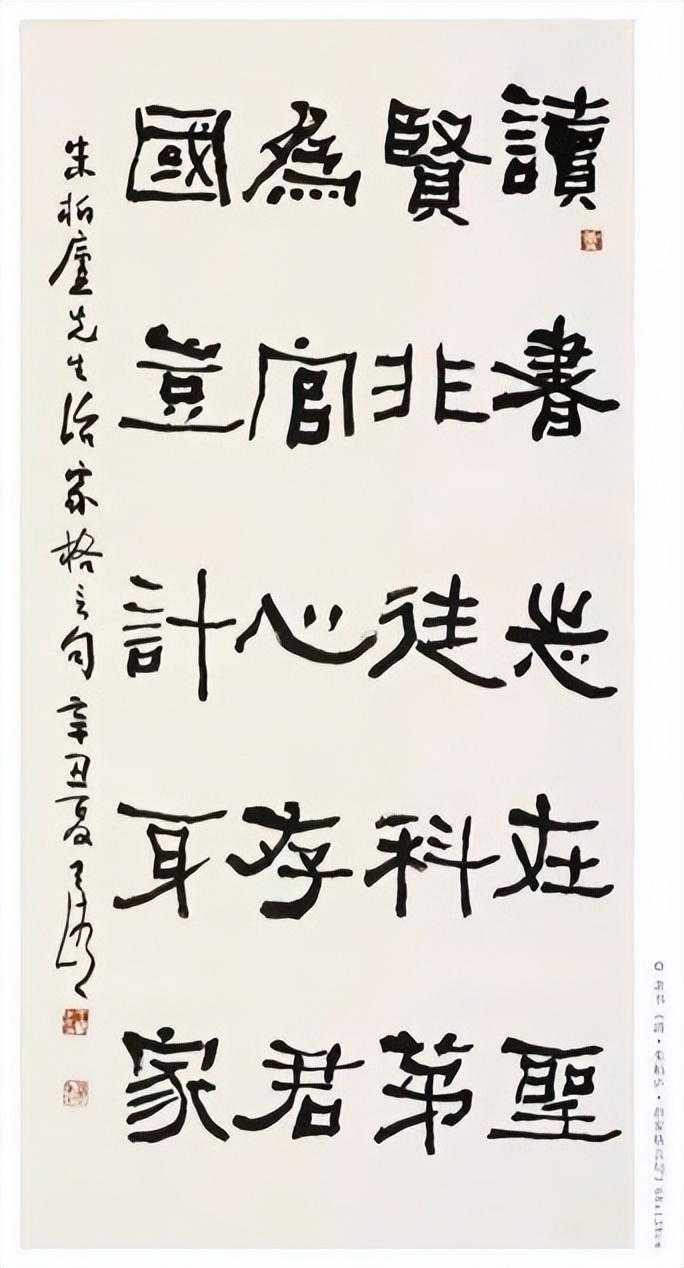 讀書志在聖
賢非徒科第
為官心存君
國豈計身家
朱柏廬先生治家格言句 辛丑夏